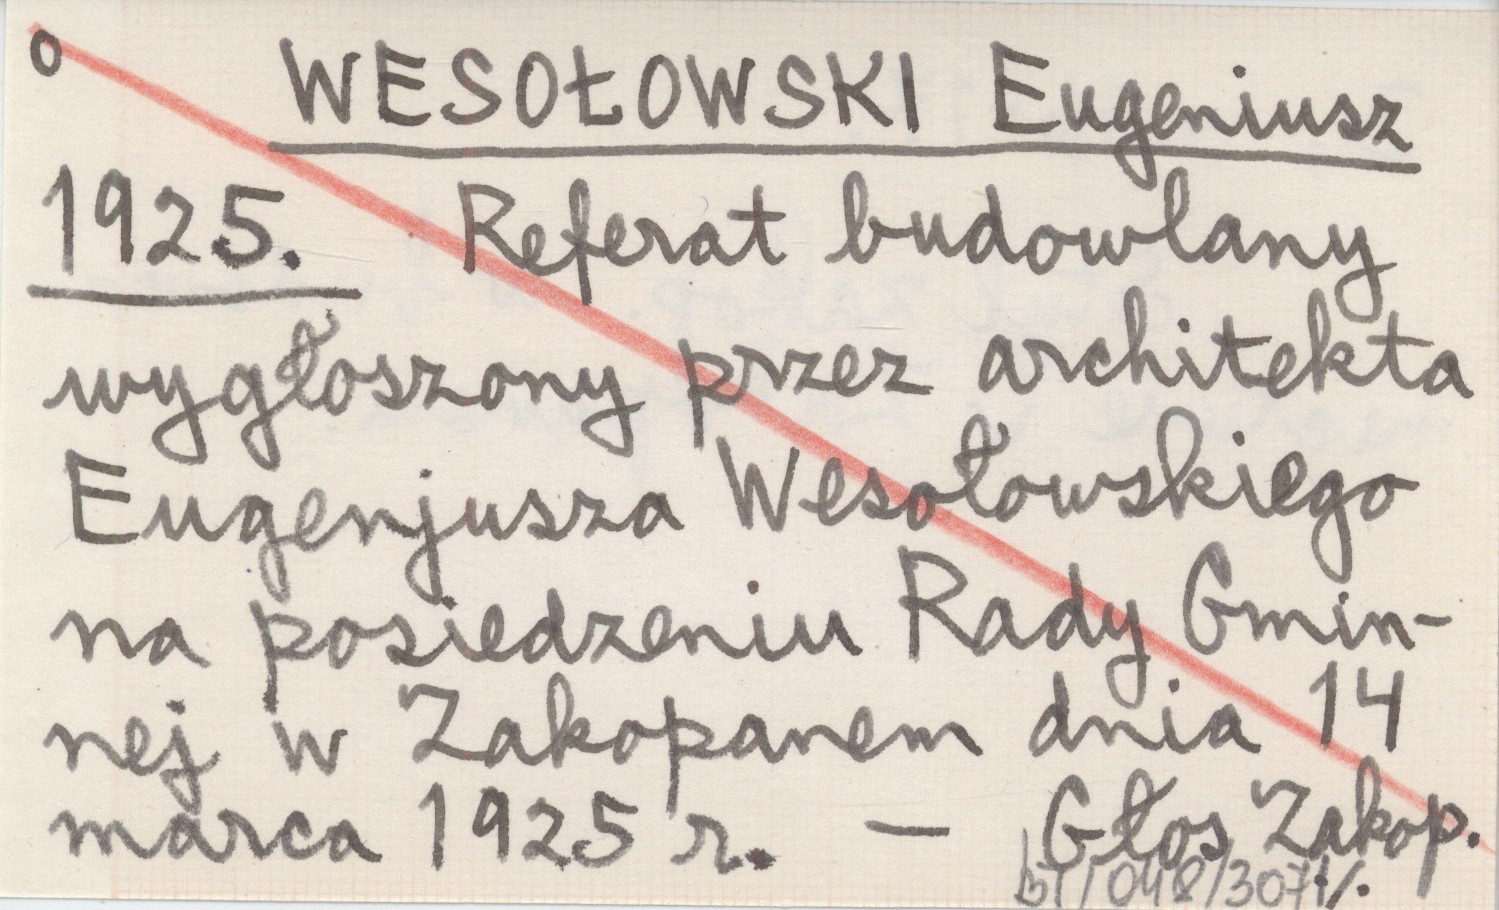 o WESOŁOWSKI Eugeniusz
1925. Referat budowlany
wygłoszony przez architekta
Eugenjusza Wesołowskiego
na posiedzeniu Rady Gmin-
nej w Zakopanem dnia 14
marca 1925 r. — Głos Zakop.
./.